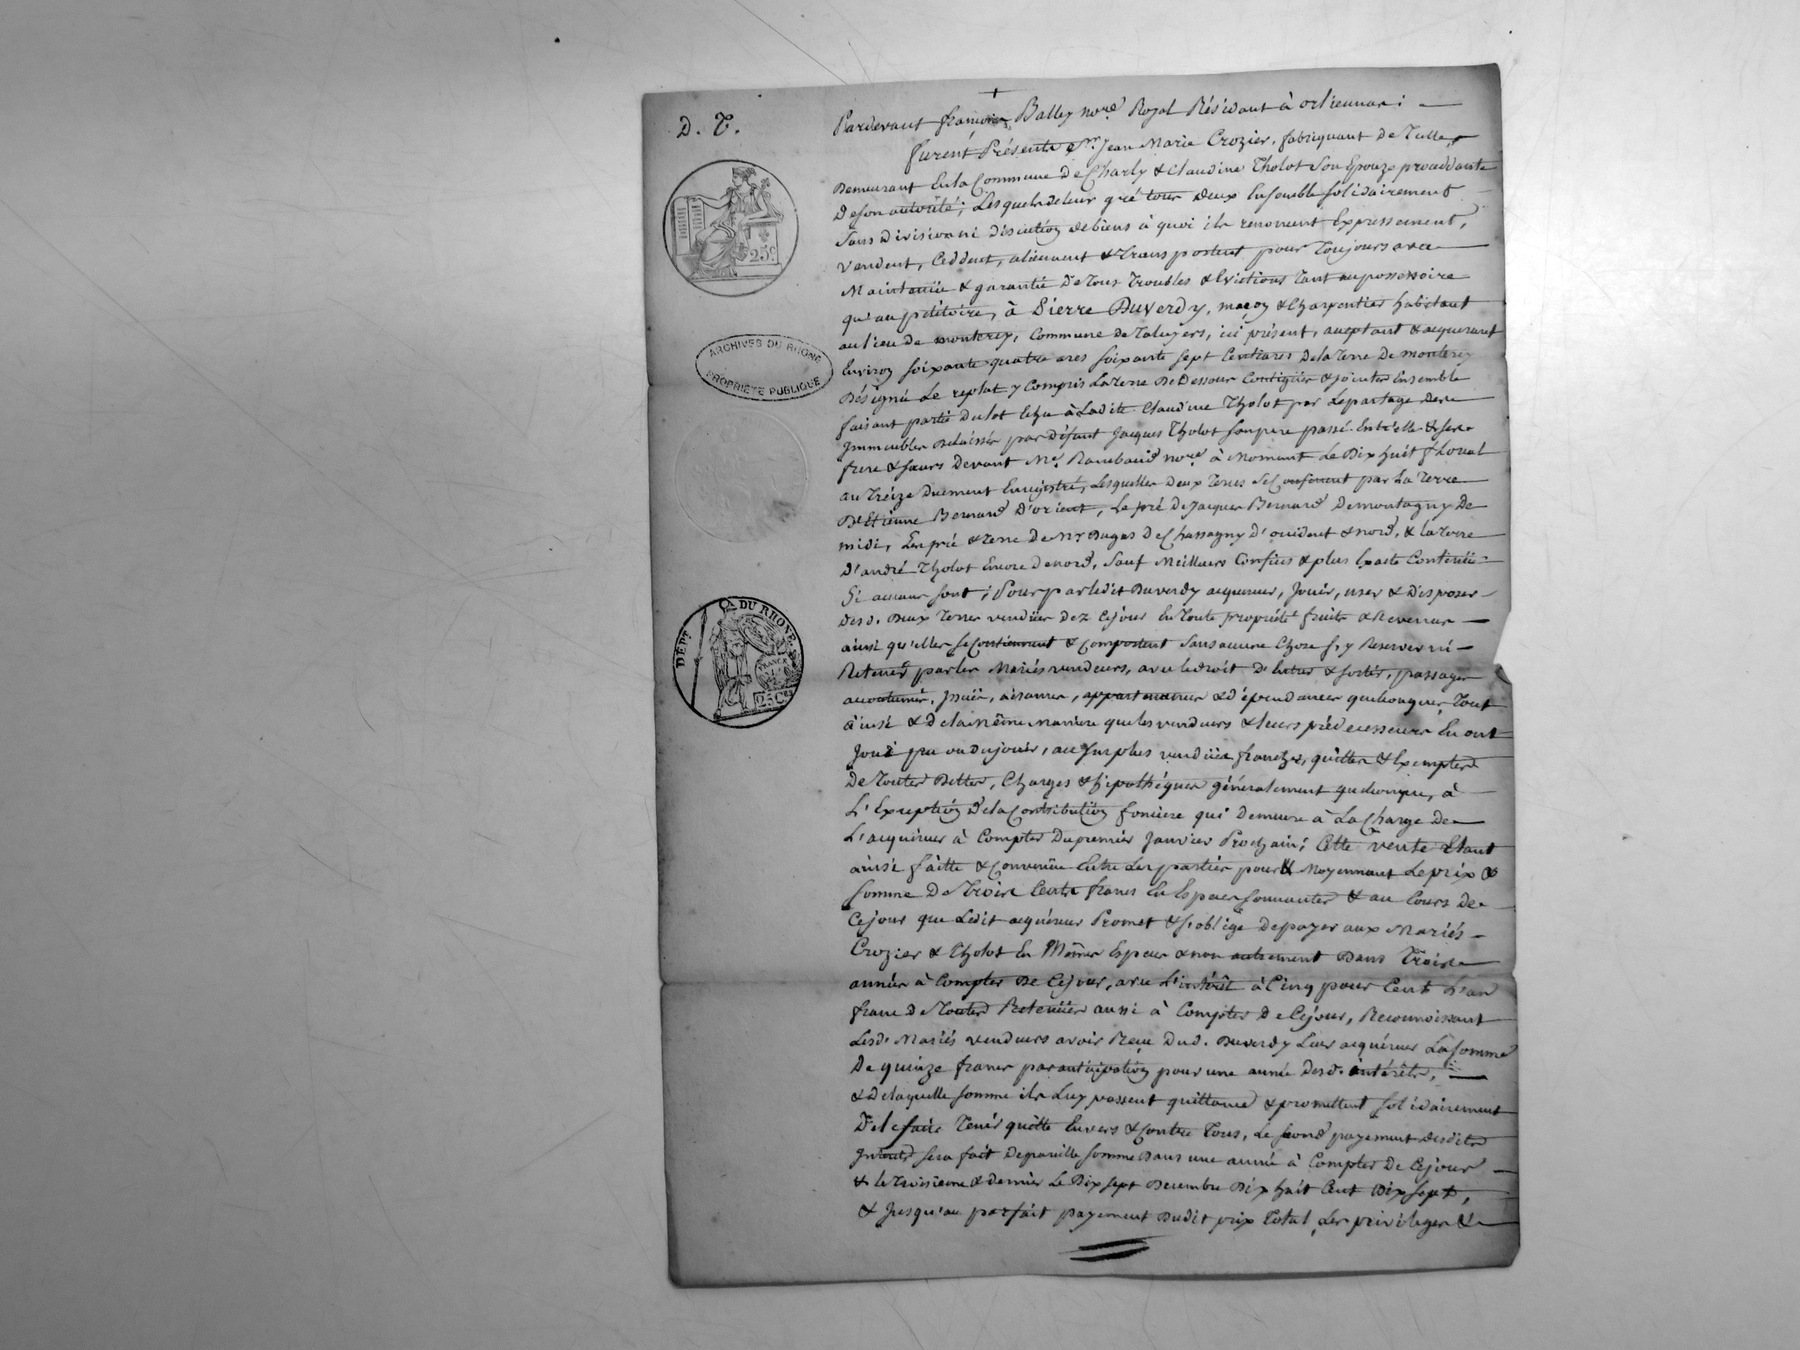 D. T.
Pardevant françois Balley no.re Royal Résidant à orliennas;
furent Présents Sr. Jean Marie Crozier, fabriquant de Tulles
Demeurant En la Commune De Charly & Claudine Tholot Son Epouze procédante
De son autorité; Lesquels de leur gré tous Deux Ensemble solidairement
Sans Division ni Discution de biens à quoi ils renoncent Expressement,
Vendent, Ceddent, aliennent & transportent pour Toujours avec
Maintenüe & garantie De Tous Troubles & Evictions Tant au possessoire
qu'au pétitoire, à Pierre Duverdy, maçon & Charpentier habitant
au lieu de monterey, Commune de Taluyers, ici présent, acceptant & acquerant
Environ soixante quatre ares soixante sept Centiares De la Terre De monterey
Désignée Le replat y Compris La Terre De Dessous Contigües & jointes Ensemble
faisant partie Du lot Echu à Ladite Claudine Tholot par Le partage des
Immeubles Délaissés par Défunt Jacques Tholot Son pere passé Entr'elle & ses
frere & sœurs Devant Me. Rambaud no.re à Mornant Le Dix huit floreal
an Treize Duement Enregistré, Lesquelles Deux Terres Se Confinent par La Terre
D'Etienne Bernard D'orient, Le pré De Jacques Bernard De montagny De
midi, Les pré & Terre de Mr Dugas De Chassagny d'occident & nord, & la Terre
D'andré Tholot Encore De nord, Sauf Meilleurs Confins & plus Exacte Contenüe
Si aucuns sont; Pour par ledit Duverdy acquereur, Jouir, user & Disposer
Desd. Deux Terres vendües dez Cejour En toute propriété fruits & Revenus
ainsi qu'elles se Contiennent & comportent Sans aucune Chose s'y Reserver ni
Retenir par les Mariés vendeurs, avec le droit d'Entrés & sortés, passages
accoutumés, Issües, aisances, appartenances & dépendances quelconques, Tout
ainsi & De la même Maniere que les vendeurs & leurs prédecesseurs En ont
Joui pu ou du jouir, au Surplus vendües franches, quittes & Exemptes
De Toutes Dettes, Charges & hipothéques généralement quelconque, à
L'Exception De la Contribution fonciere qui Demeure à La Charge De
L'acquéreur à Compter Du premier Janvier Prochain; Cette vente Etant
ainsi faitte & Convenüe Entre Les parties pour & Moyennant Le prix &
Somme De Trois Cents francs En Especes sonnantes & au Cours De
Cejour que Ledit acquéreur Promet & s'oblige De payer aux Mariés
Crozier & Tholot En Mêmes Especes & non autrement Dans Trois
années à Compter De Cejour, avec L'intérêt à Cinq pour Cent L'an
franc De Toutes Retenües aussi à Compter De Cejour, Reconnoissant
Lesd. Mariés vendeurs avoir Reçu Dud. Duverdy Leur acquéreur La Somme
De quinze francs par anticipation pour une année Desd. intérêts,
& De laquelle somme ils Luy passent quittance & promettent solidairement
De le faire Tenir quitte Envers & Contre Tous, Le second payement Desdits
Intérêts sera fait De pareille somme Dans une année à Compter De Cejour
& le troisieme & dernier Le Dix sept Decembre Dix huit Cent Dix sept,
& Jusqu'au parfait payement Dudit prix Total, Les privileges &
25 C
ARCHIVES DU RHÔNE
PROPRIÉTÉ PUBLIQUE
DÉPT DU RHONE
FRANCE
25 Ces